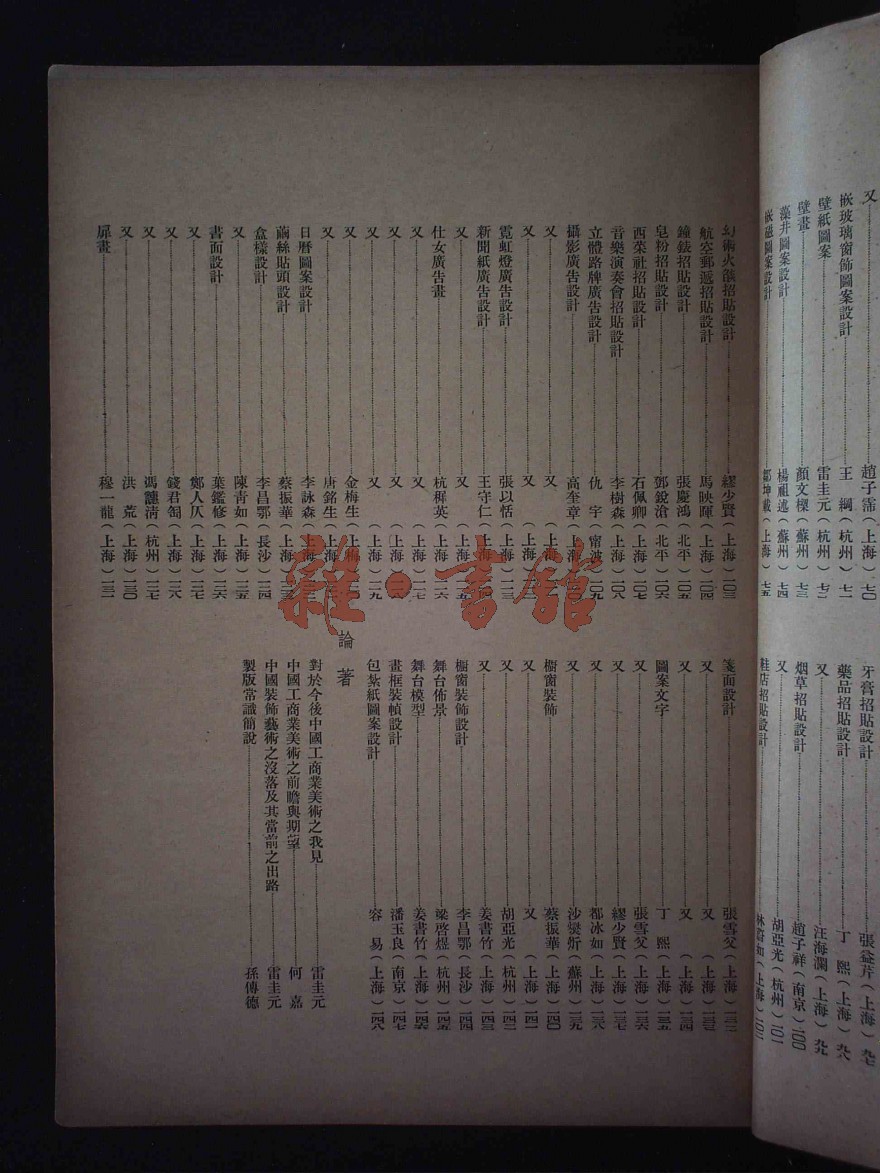 又 趙子霈(上海)七〇
嵌玻璃窗飾圖案設計 王綱(杭州)七一
壁紙圖案 雷圭元(杭州)七二
壁畫 顏文樑(蘇州)七三
藻井圖案設計 楊祖述(蘇州)七四
嵌磁圖案設計 鄒坤載(上海)七五
牙膏招貼設計 張益芹(上海)九七
藥品招貼設計 丁熙(上海)九八
又 汪海瀾(上海)九九
烟草招貼設計 趙子祥(南京)一〇〇
又 胡亞光(杭州)一〇一
鞋店招貼設計 (上海)一〇二
幻術火筷招貼設計 繆少賢(上海)一〇三
航空郵遞招貼設計 馬映暉(上海)一〇四
鐘錶招貼設計 張慶鴻(北平)一〇五
皂粉招貼設計 鄧銳滄(北平)一〇六
西萊社招貼設計 石佩卿(上海)一〇七
音樂演奏會招貼設計 李樹森(上海)一〇八
立體路牌廣告設計 仇宇(甯波)一〇九
攝影廣告設計 高奎章(上海)
又 又(上海)
又 又(上海)
霓虹燈廣告設計 張以恬(上海)一一三
新聞紙廣告設計 王守仁(上海)
又 又(上海)一一五
仕女廣告畫 杭穉英(上海)一一六
又 又(上海)一一七
又 又(上海)
又 又(上海)一一九
又 金梅生(上海)
又 唐銘生(上海)
日曆圖案設計 李詠森(上海)
繭絲貼頭設計 蔡振華(上海)
盒樣設計 李昌鄂(長沙)一二四
又 陳青如(上海)一二五
書面設計 葉鑑修(上海)一二六
又 鄭人仄(上海)一二七
又 錢君匋(上海)一二八
又 馮髓清(杭州)
又 洪荒(上海)一三〇
扉畫 穆一龍(上海)一三一
箋面設計 張雪父(上海)一三二
又 又(上海)一三三
又 又(上海)一三四
圖案文字 丁熙(上海)一三五
又 張雪父(上海)一三六
又 繆少賢(上海)一三七
又 都冰如(上海)一三八
又 沙燮炘(蘇州)一三九
櫥窗裝飾 蔡振華(上海)一四〇
又 又(上海)一四一
又 胡亞光(杭州)一四二
又 姜書竹(上海)一四三
櫥窗裝飾設計 李昌鄂(長沙)一四四
舞台佈景 梁啓煜(杭州)一四五
舞台模型 姜書竹(上海)一四六
畫框裝幀設計 潘玉良(南京)一四七
包紮紙圖案設計 容易(上海)一四八
論著
對於今後中國工商業美術之我見 雷圭元
中國工商業美術之前瞻與期望 何嘉
中國裝飾藝術之沒落及其當前之出路 雷圭元
製版常識簡說 孫傳德
雜·書館